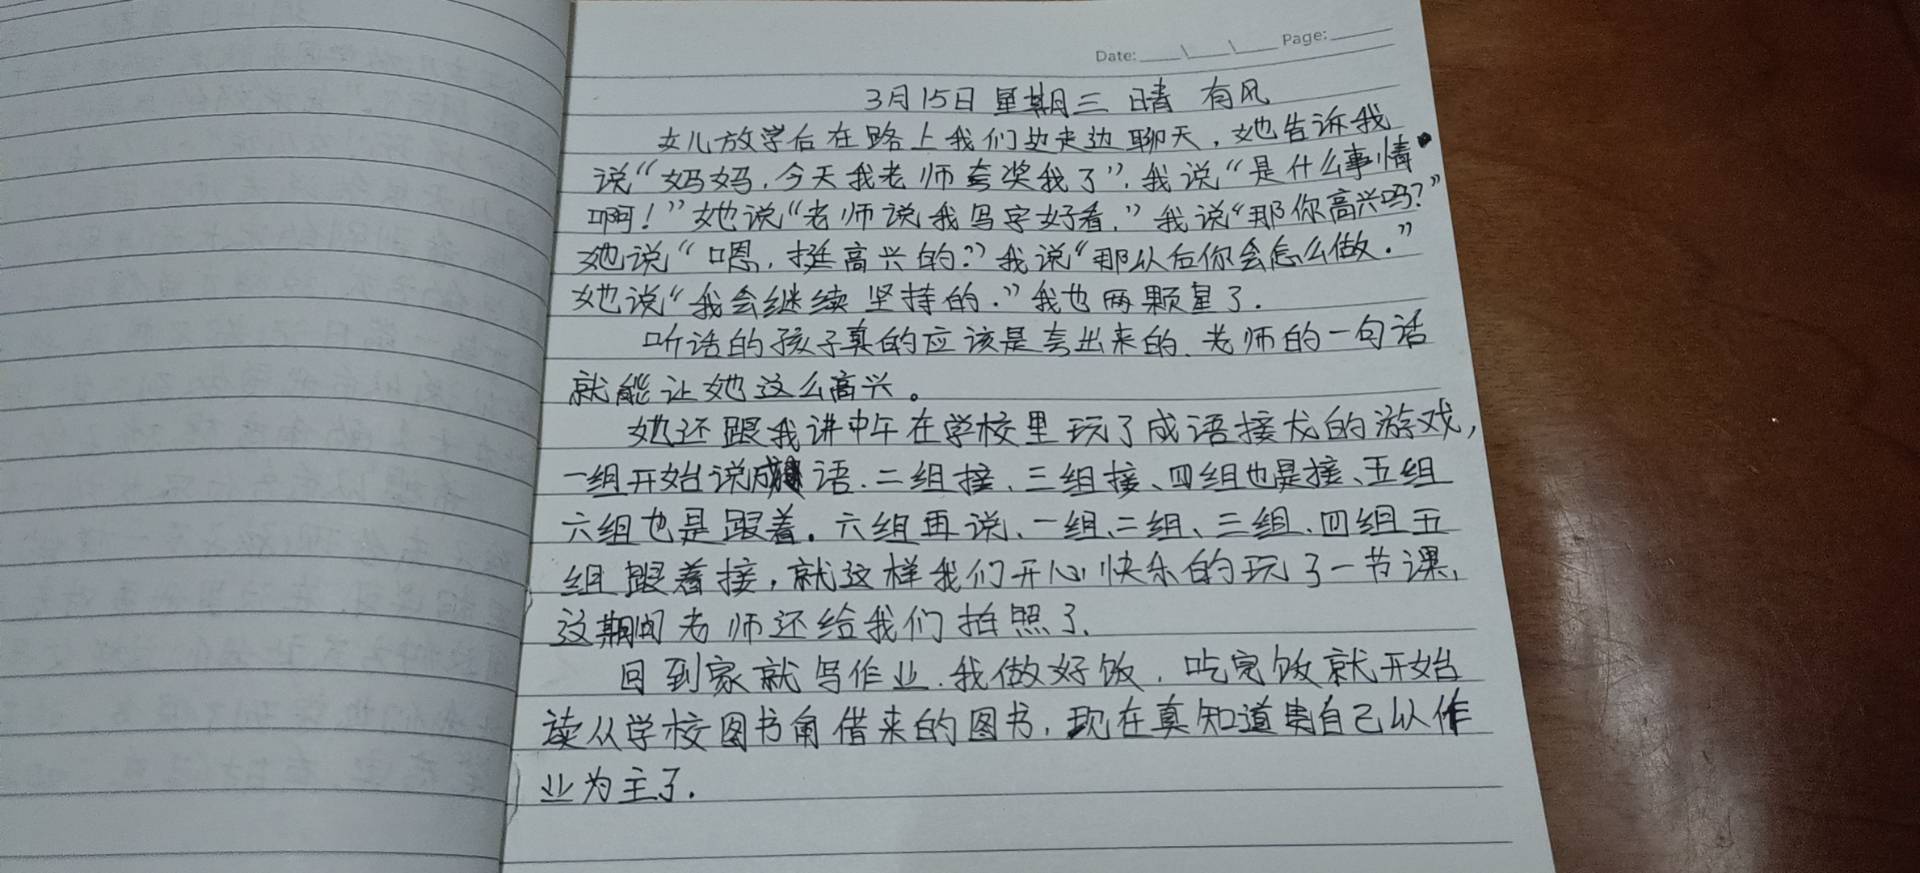 Date: \ \ Page:
3月15日 星期三 晴 有风
女儿放学后在路上我们边走边聊天，她告诉我
说“妈妈，今天我老师夸奖我了”，我说“是什么事情
啊！”她说“老师说我写字好看，”我说“那你高兴吗？”
她说“嗯，挺高兴的？”我说“那从后你会怎么做．”
她说“我会继续坚持的．”我也两颗星了．
听话的孩子真的应该是夸出来的、老师的一句话
就能让她这么高兴。
她还跟我讲中午在学校里玩了成语接龙的游戏，
一组开始说成语．二组接、三组接、四组也是接、五组
六组也是跟着．六组再说、一组、二组、三组、四组五
组跟着接，就这样我们开心快乐的玩了一节课，
这期间老师还给我们拍照了．
回到家就写作业．我做好饭．吃完饭就开始
读从学校图书角借来的图书，现在真知道自己以作
业为主了．